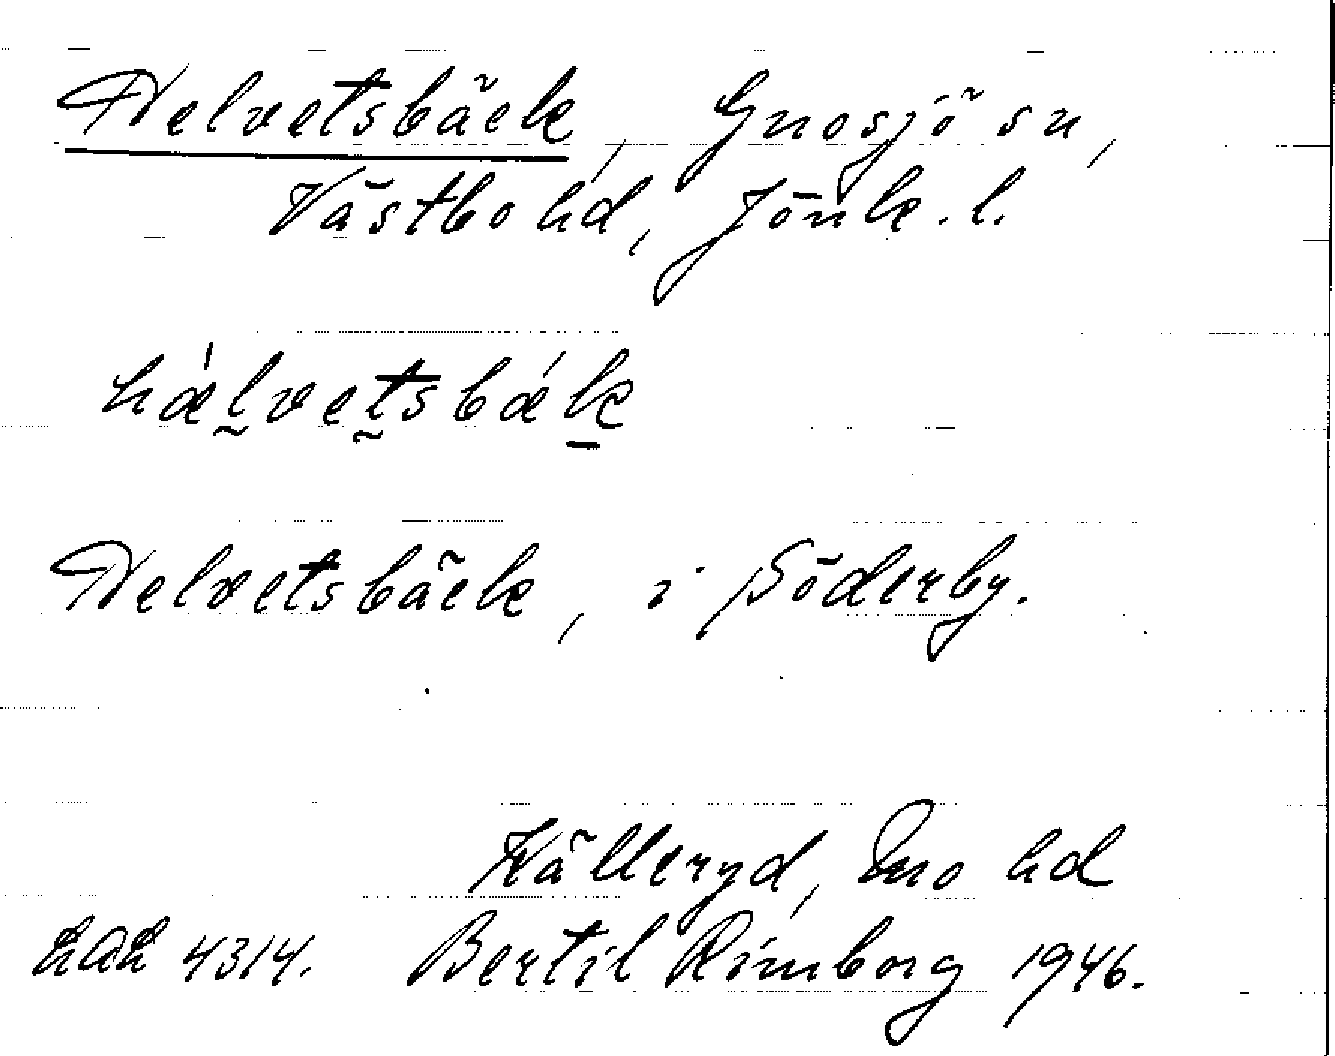 Helvetsbäck, Gnosjö sn,
Västbo hd, Jönk. l.
hǽlvetsbǽk
Helvetsbäck, i Söderby.
Källeryd, Mo hd
LAL 4314. Bertil Rimborg 1946.